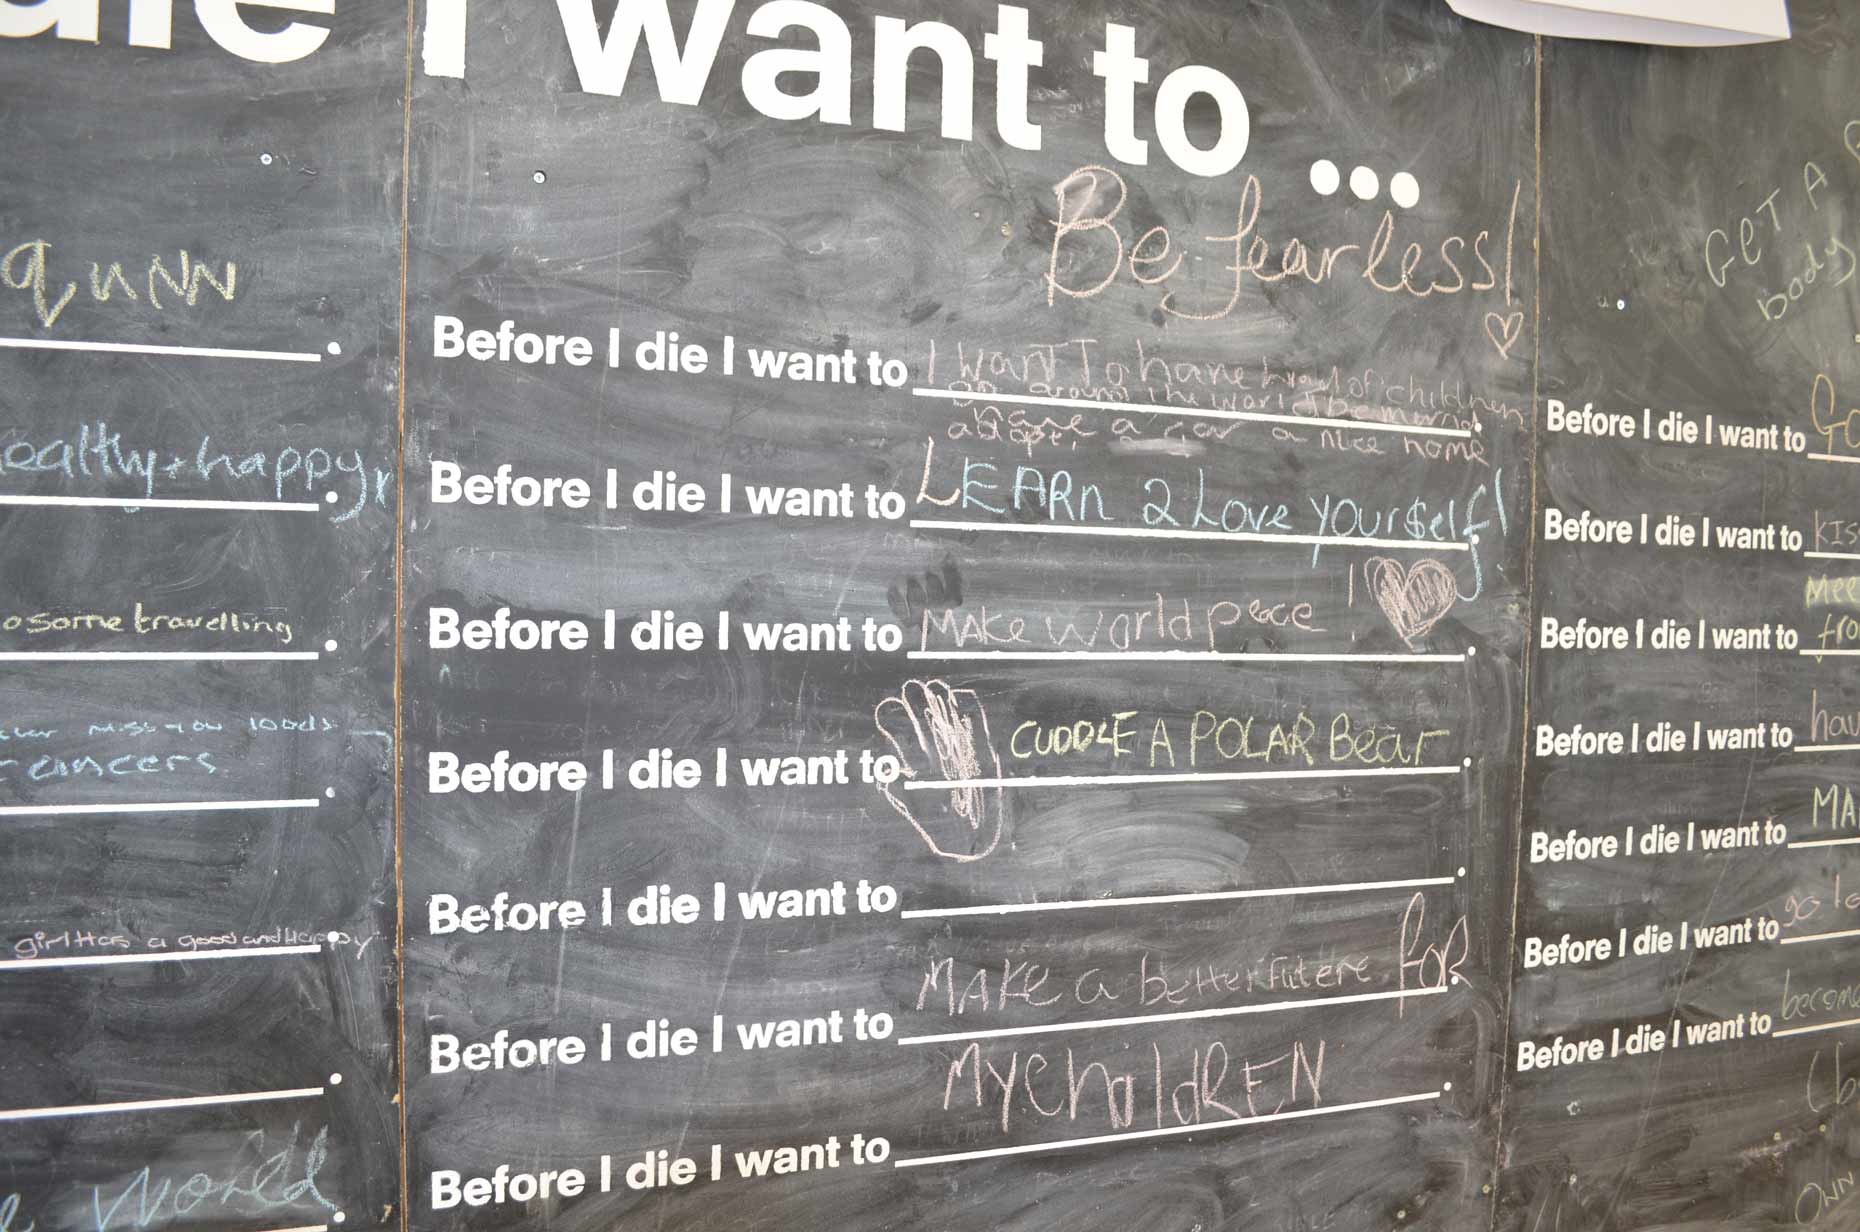 die I want to ...
qunn
ealthy + happy x
o some travelling
miss you loads
cancers
girl Has a good and Happy
World
Be fearless!
Before I die I want to I want To have load of children
go around the world be married
have a car a nice home
adopt,
Before I die I want to LEARn 2 Love yourself!
Before I die I want to MAKe world peace !
Before I die I want to CUDDLE A POLAR Bear
Before I die I want to
Before I die I want to MAKe a better futere foR
Before I die I want to MY ChaildREN
GeT A
body
Before I die I want to Go
Before I die I want to kis
Mee
Before I die I want to fro
Before I die I want to hav
Before I die I want to MA
Before I die I want to go to
Before I die I want to become
(b
OWN